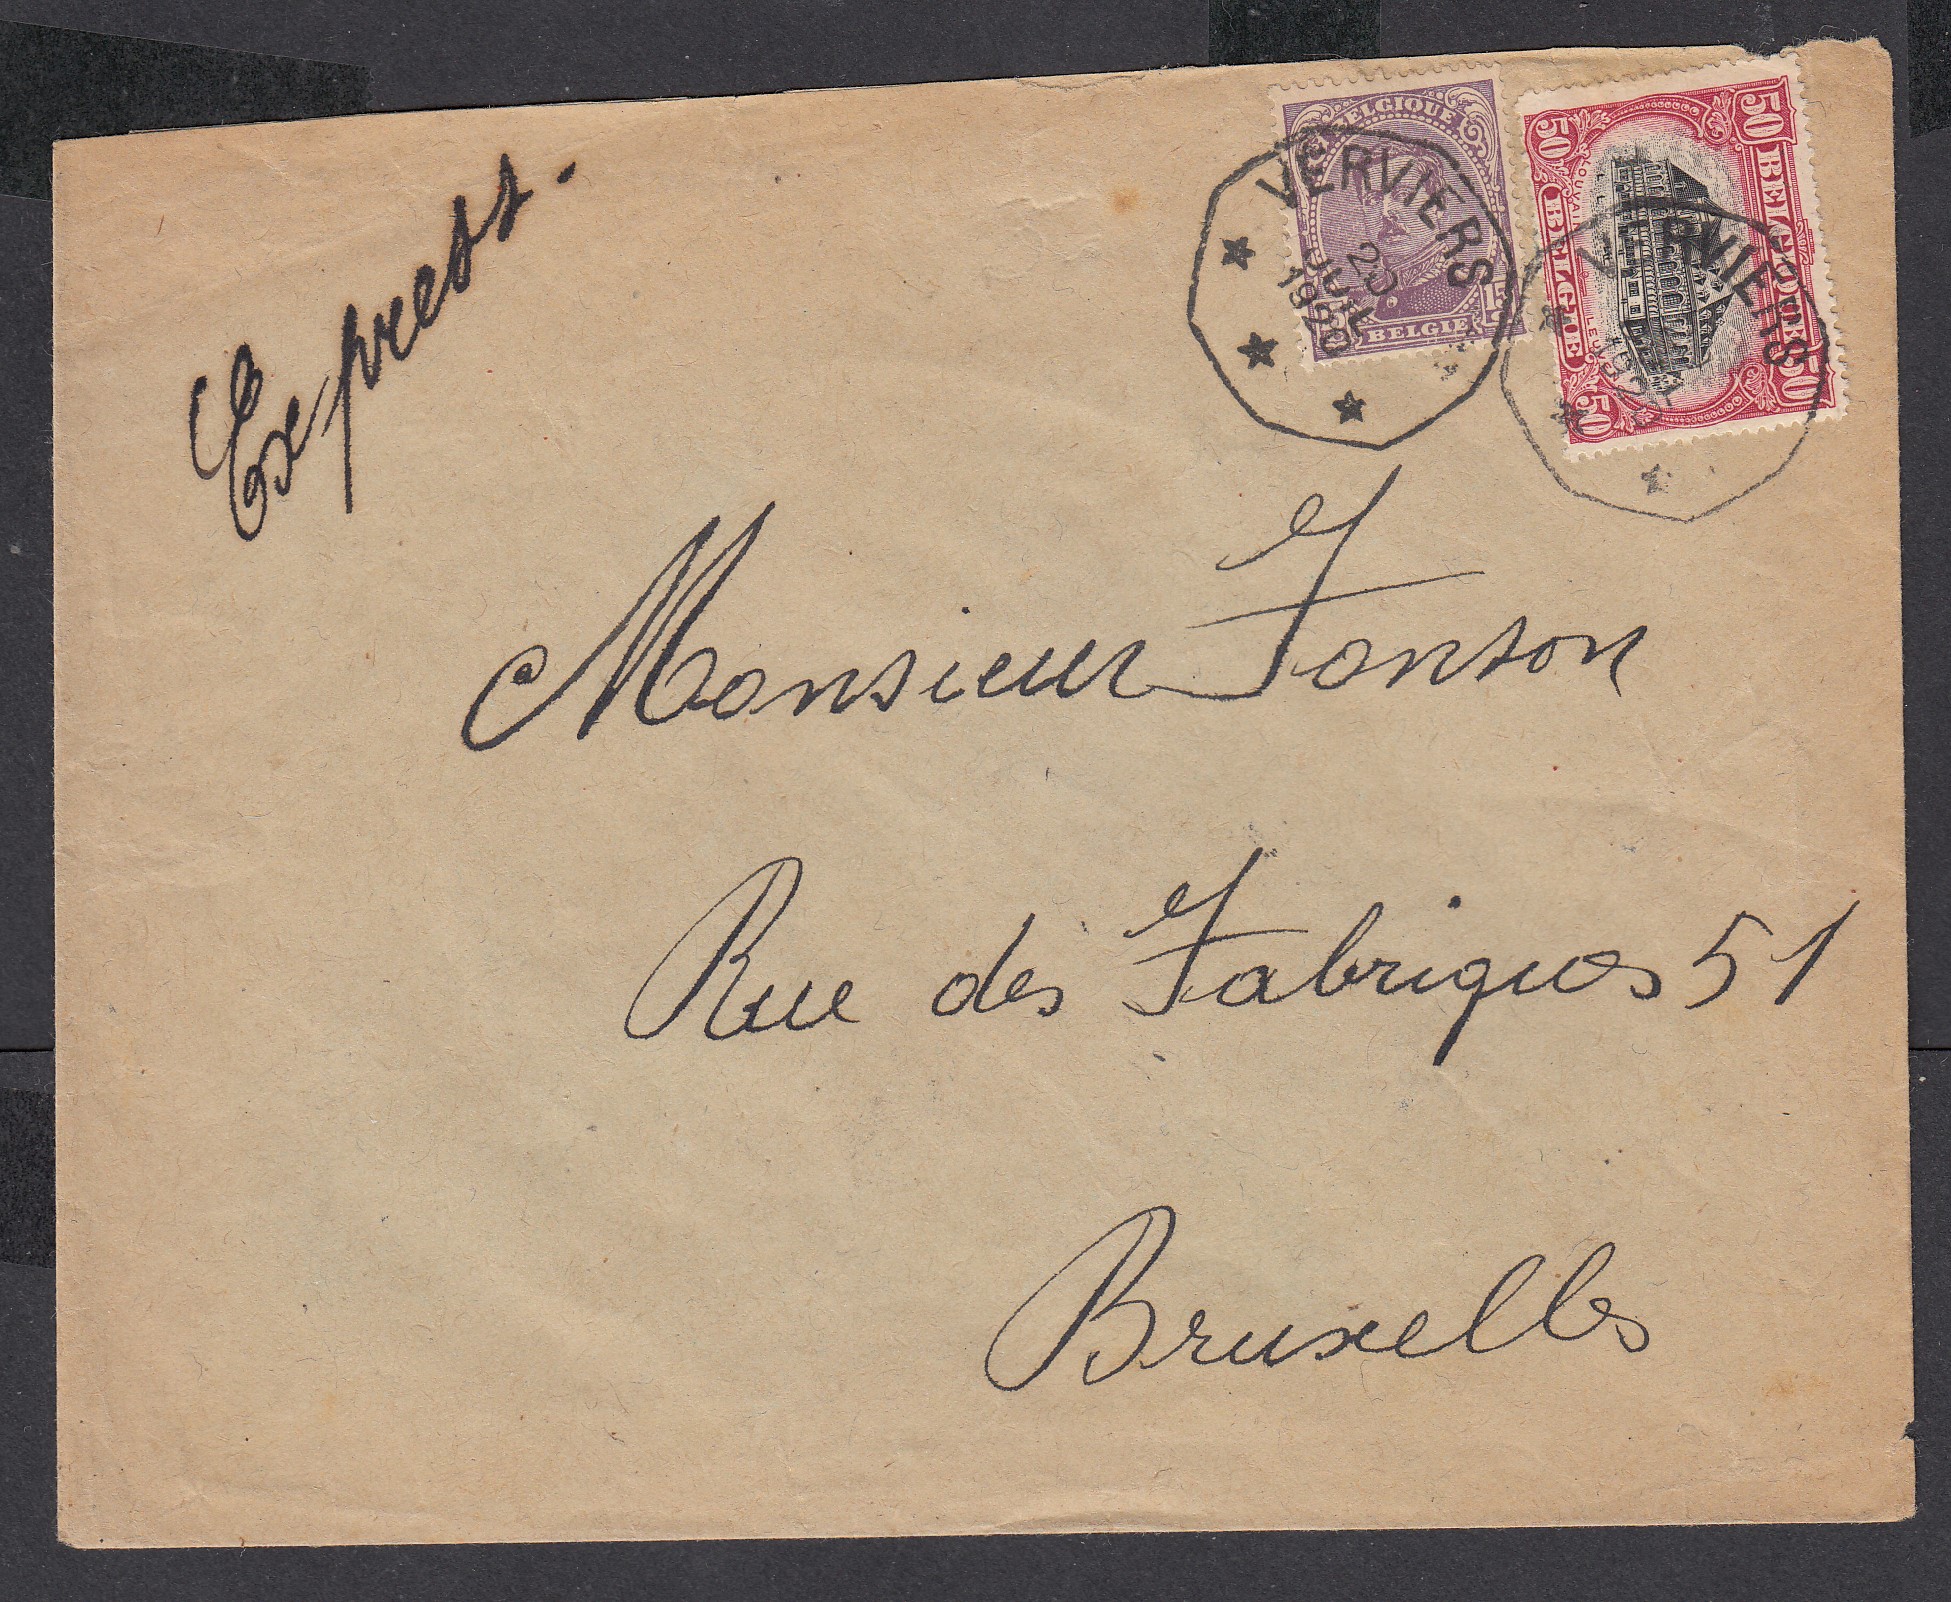 Express.
BELGIQUE
15
BELGIE
VERVIERS
20
JUIL
1920
50 BELGIQUE 50
LOUVAIN
50 BELGIE 50
VERVIERS
Monsieur Fonson
Rue des Fabriques 51
Bruxelles